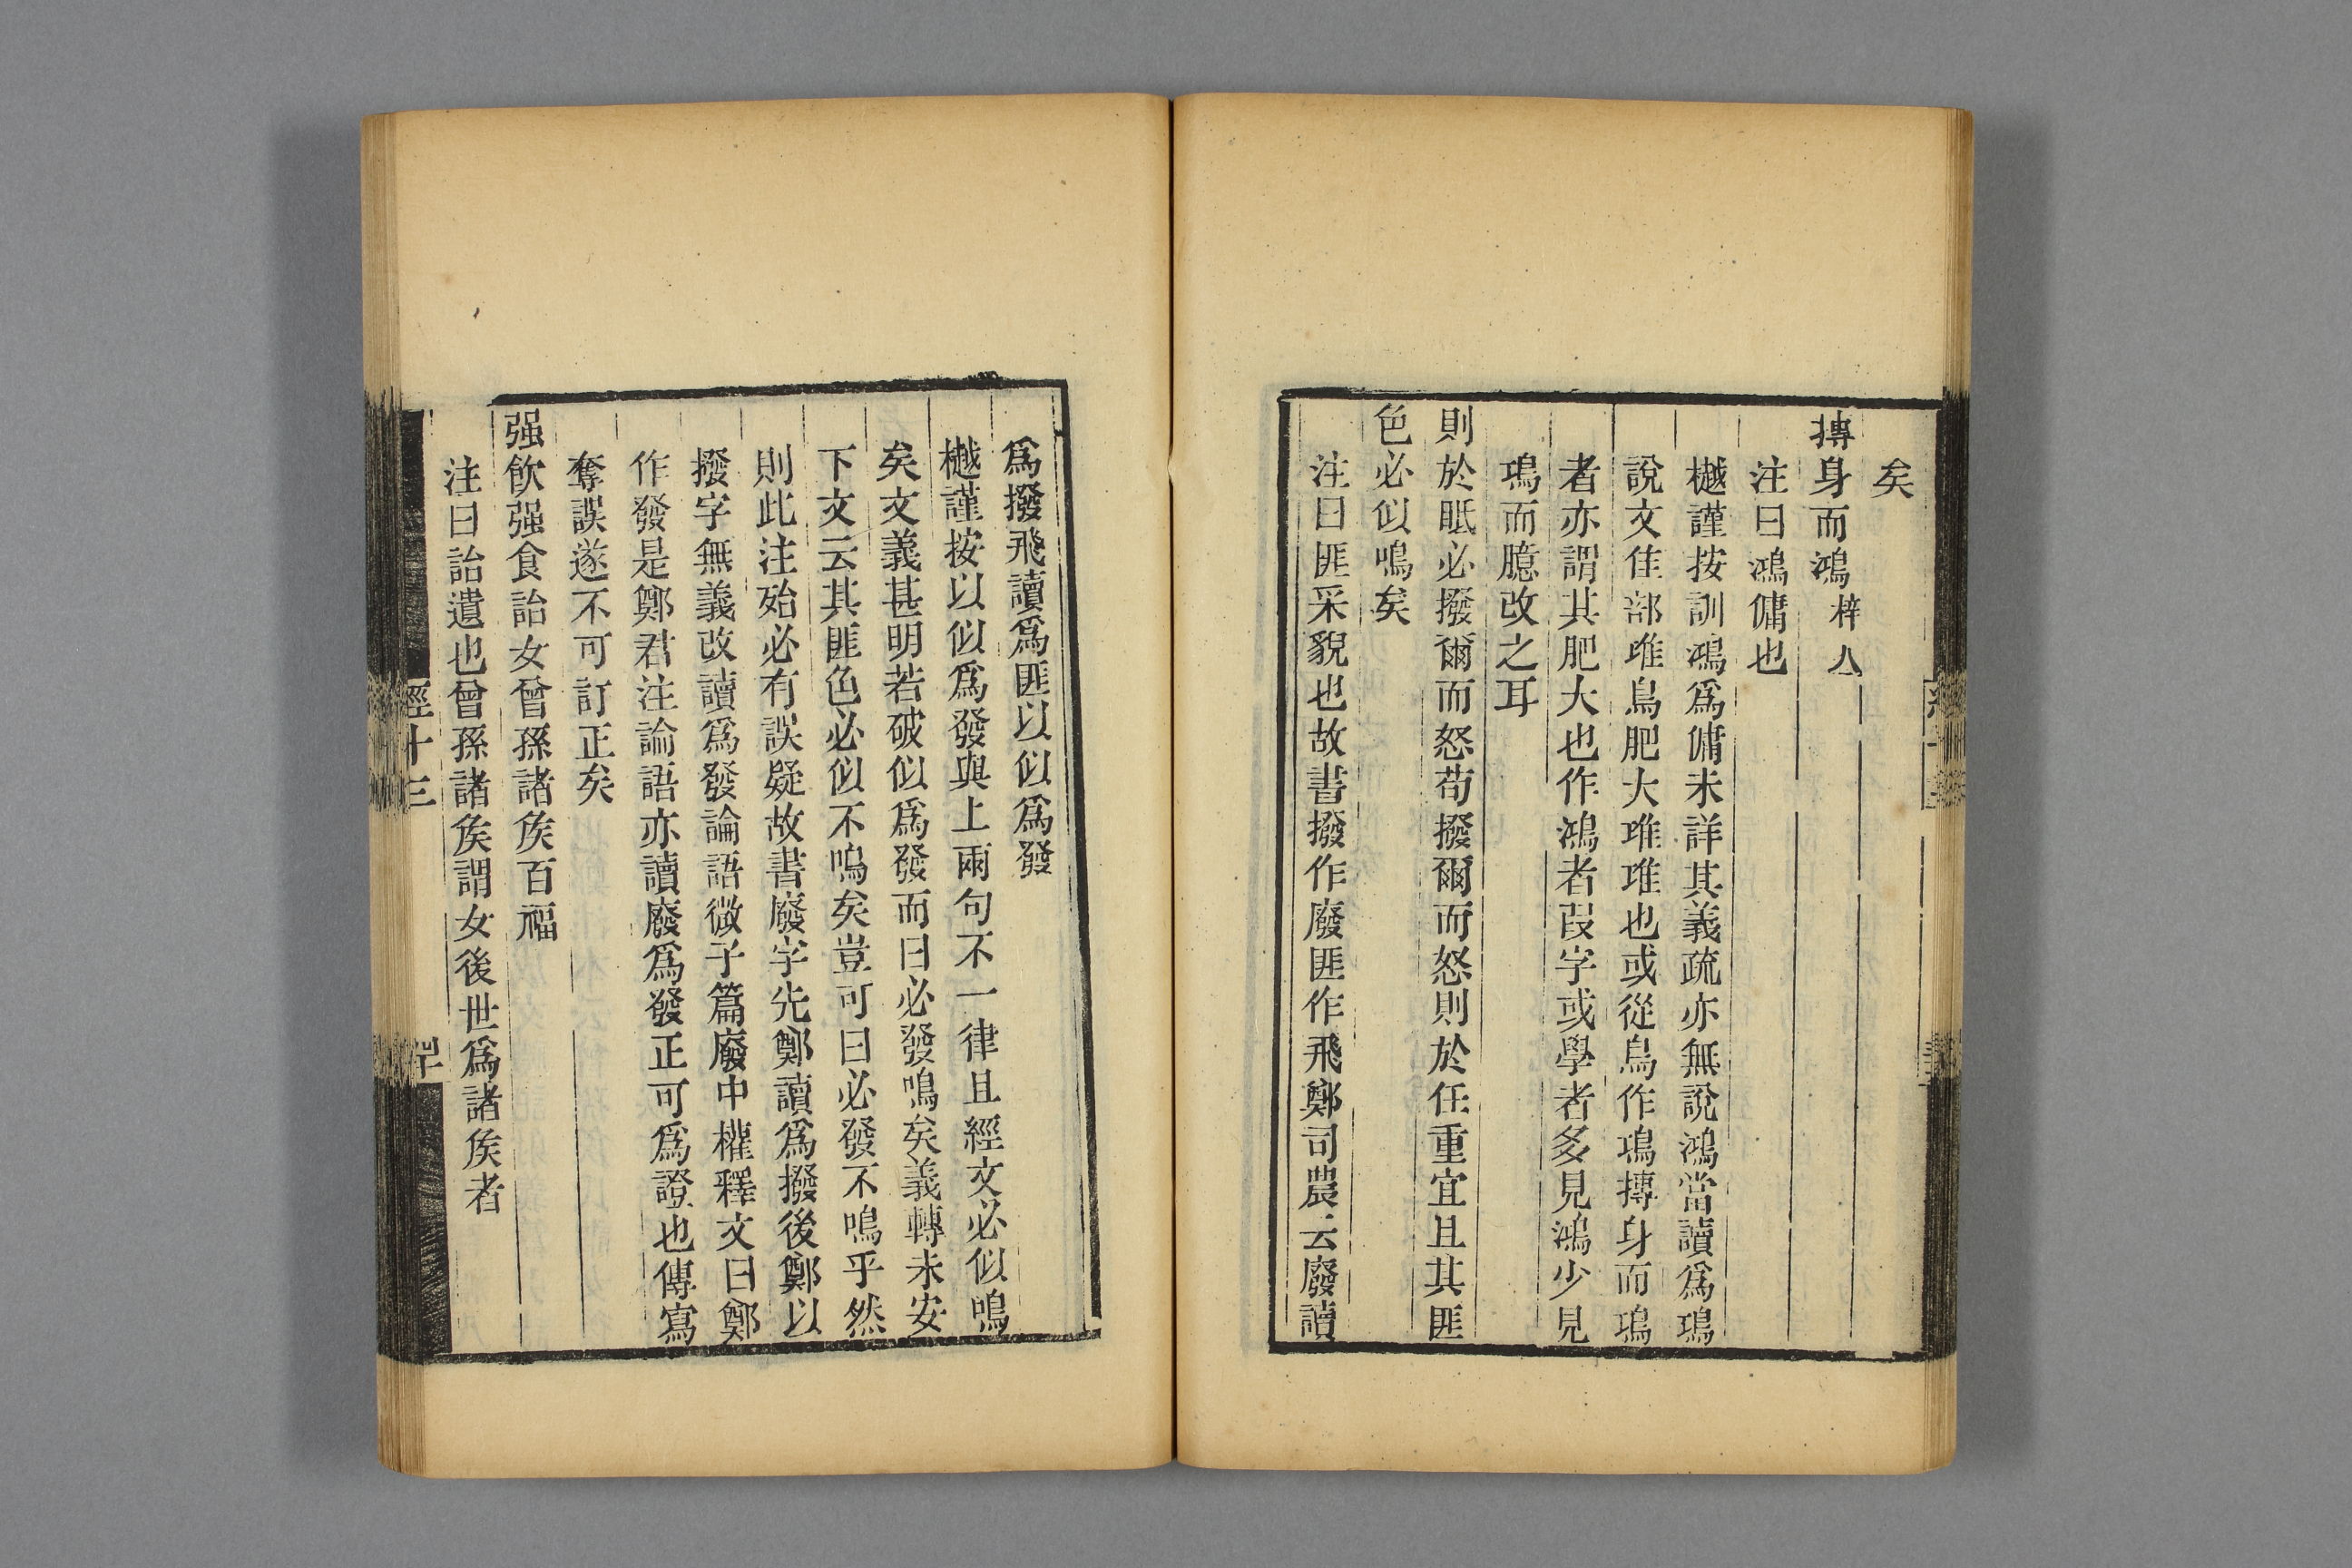 矣
摶身而鴻梓人
注曰鴻傭也
樾謹按訓鴻爲傭未詳其義疏亦無說鴻當讀爲鳿
說文隹部䧹鳥肥大䧹䧹也或從鳥作鳿摶身而鳿
者亦謂其肥大也作鴻者叚字或學者多見鴻少見
鳿而臆改之耳
則於眂必撥爾而怒苟撥爾而怒則於任重宜且其匪
色必似鳴矣
注曰匪采貌也故書撥作廢匪作飛鄭司農云廢讀
爲撥飛讀爲匪以似爲發
樾謹按以似爲發與上兩句不一律且經文必似鳴
矣文義甚明若破似爲發而曰必發鳴矣義轉未安
下文云其匪色必似不鳴矣豈可曰必發不鳴乎然
則此注殆必有誤疑故書廢字先鄭讀爲撥後鄭以
撥字無義改讀爲發論語微子篇廢中權釋文曰鄭
作發是鄭君注論語亦讀廢爲發正可爲證也傳寫
奪誤遂不可訂正矣
强飮强食詒女曾孫諸矦百福
注曰詒遺也曾孫諸矦謂女後世爲諸矦者
經十三